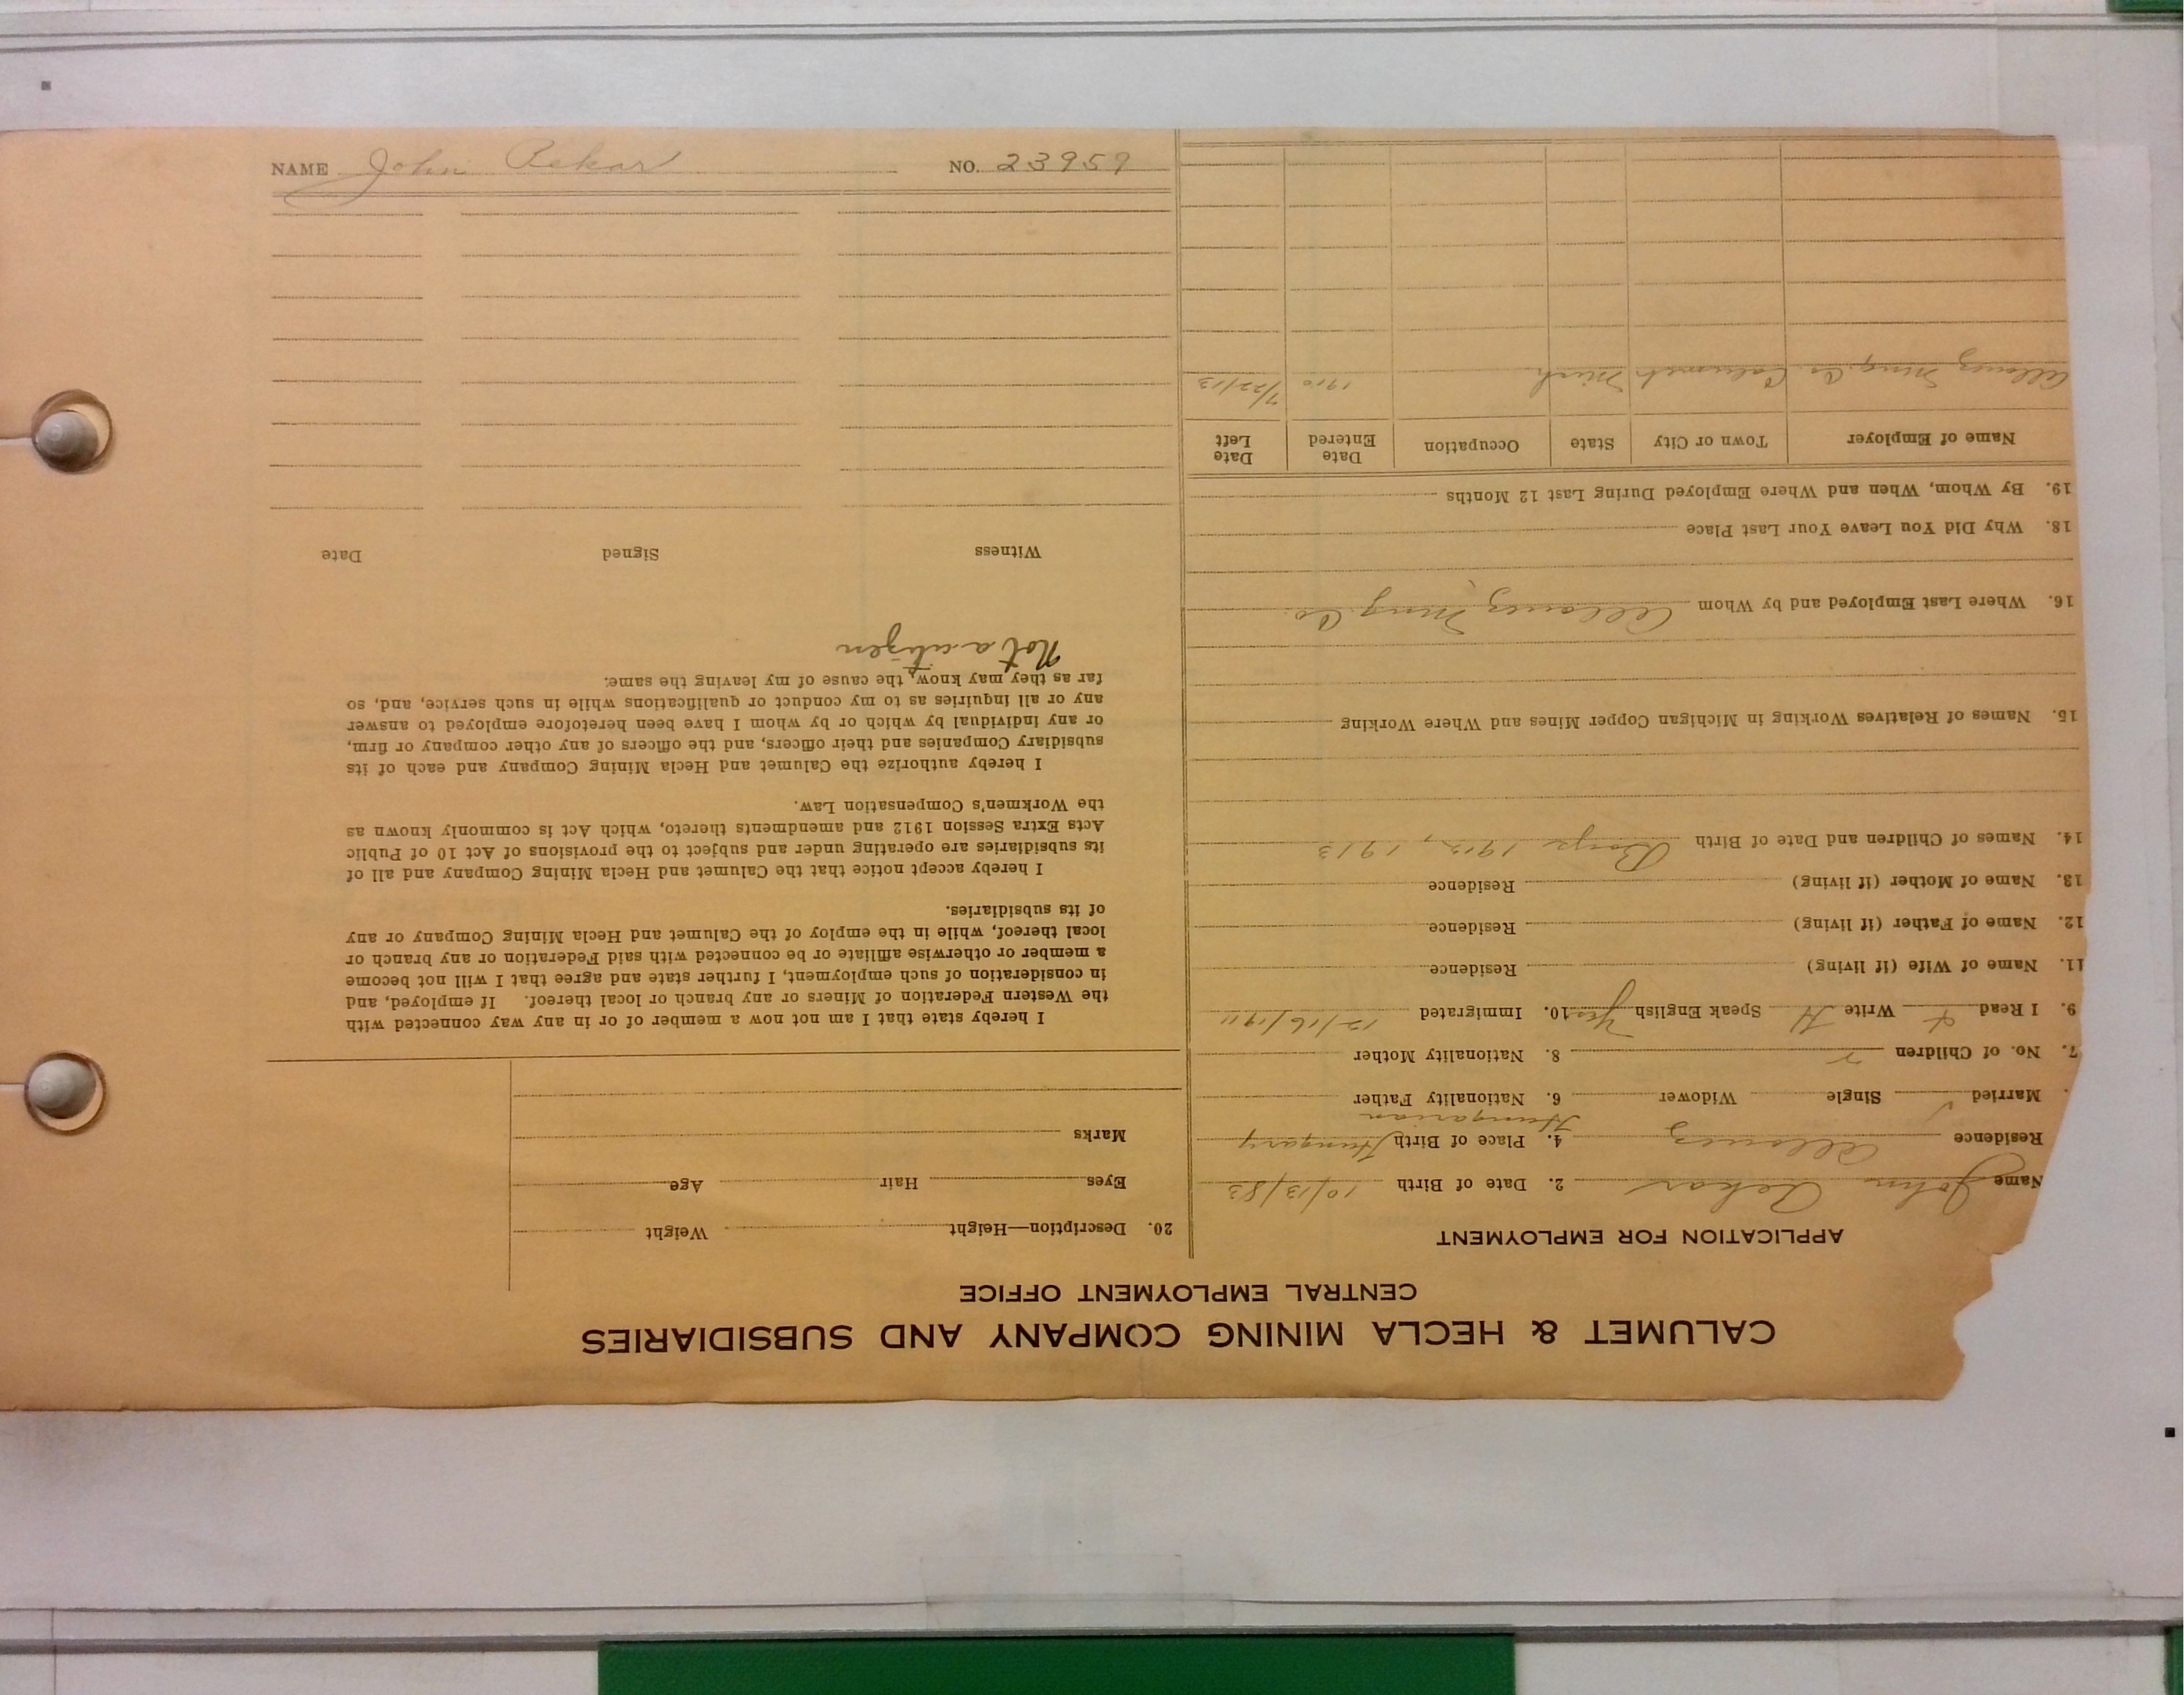 CALUMET & HECLA MINING COMPANY AND SUBSIDIARIES
CENTRAL EMPLOYMENT OFFICE
APPLICATION FOR EMPLOYMENT
Name John 2. Date of Birth 10/13/83
Residence Allouez 4. Place of Birth Hungary
Hungarian
Married ✓ Single Widower 6. Nationality Father
7. No. of Children 2 8. Nationality Mother
9. I Read Write Speak English Yes 10. Immigrated 12/16/1911
11. Name of Wife (if living) Residence
12. Name of Father (if living) Residence
13. Name of Mother (if living) Residence
14. Names of Children and Date of Birth Boys 1912, 1913
15. Names of Relatives Working in Michigan Copper Mines and Where Working
16. Where Last Employed and by Whom Allouez Mng. Co.
18. Why Did You Leave Your Last Place
19. By Whom, When and Where Employed During Last 12 Months
Name of Employer Town or City State Occupation Date Entered Date Left
Allouez Mng. Co Calumet Mich. 1910 7/22/13
20. Description—Height Weight
Eyes Hair Age
Marks
I hereby state that I am not now a member of or in any way connected with
the Western Federation of Miners or any branch or local thereof. If employed, and
in consideration of such employment, I further state and agree that I will not become
a member or otherwise affiliate or be connected with said Federation or any branch or
local thereof, while in the employ of the Calumet and Hecla Mining Company or any
of its subsidiaries.
I hereby accept notice that the Calumet and Hecla Mining Company and all of
its subsidiaries are operating under and subject to the provisions of Act 10 of Public
Acts Extra Session 1912 and amendments thereto, which Act is commonly known as
the Workmen's Compensation Law.
I hereby authorize the Calumet and Hecla Mining Company and each of its
subsidiary Companies and their officers, and the officers of any other company or firm,
or any individual by which or by whom I have been heretofore employed to answer
any or all inquiries as to my conduct or qualifications while in such service, and, so
far as they may know, the cause of my leaving the same.
Not a citizen
Witness Signed Date
NAME John NO. 23959